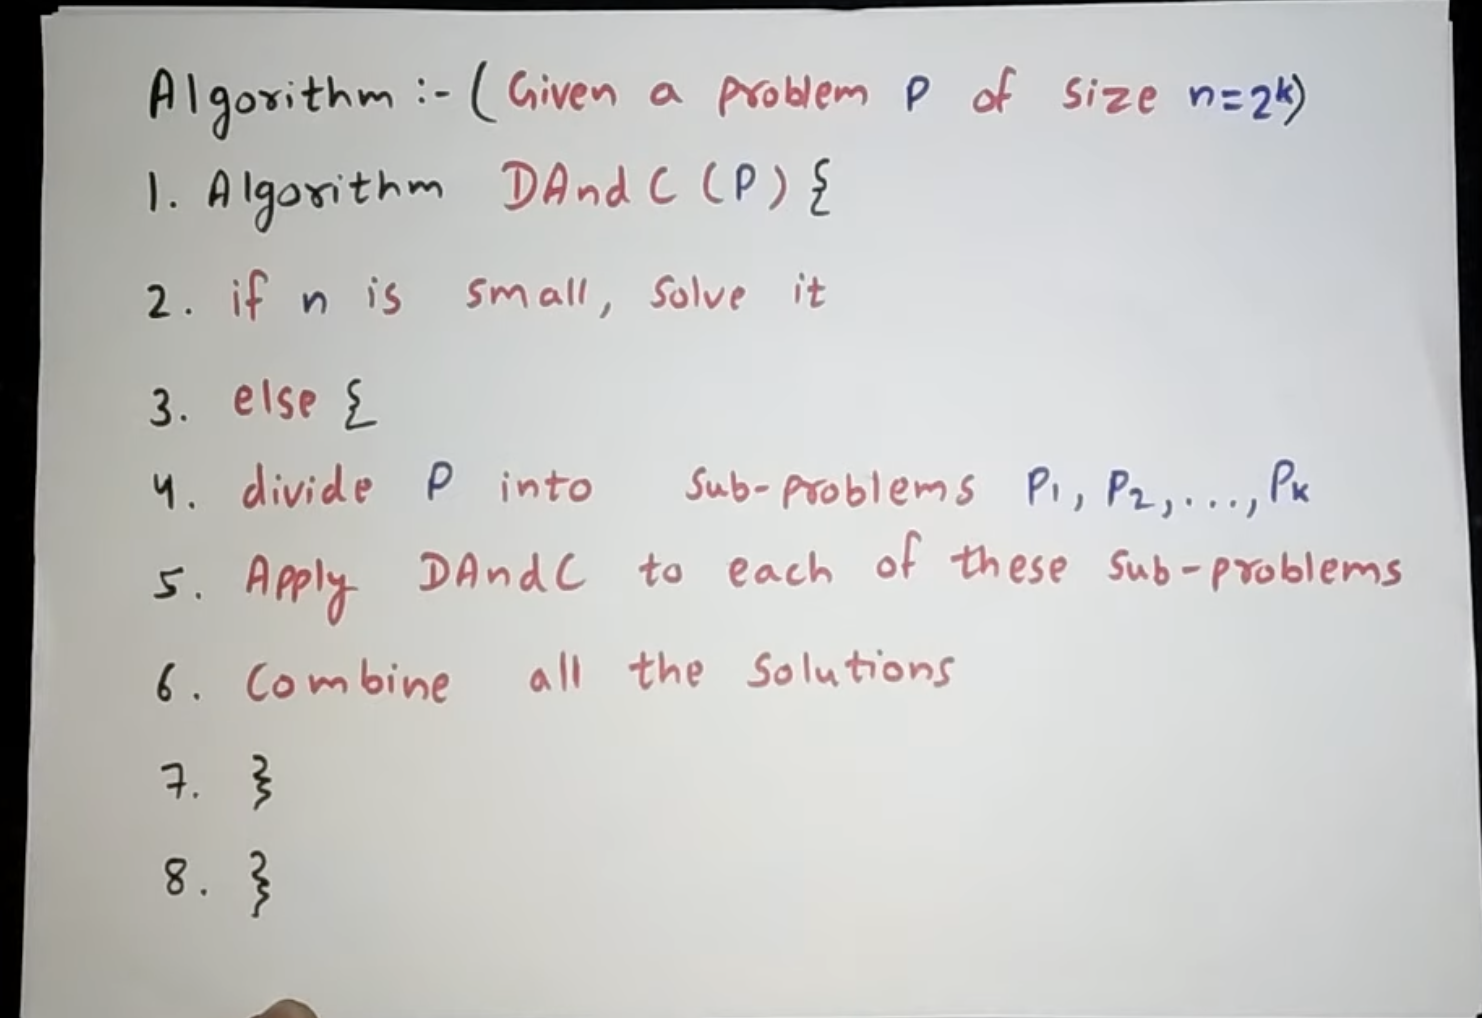 Algorithm :- ( Given a problem P of size n=2^k)
1. Algorithm DAndC (P) {
2. if n is small, solve it
3. else {
4. divide P into sub-problems P1, P2, ..., Pk
5. Apply DAndC to each of these sub-problems
6. Combine all the solutions
7. }
8. }